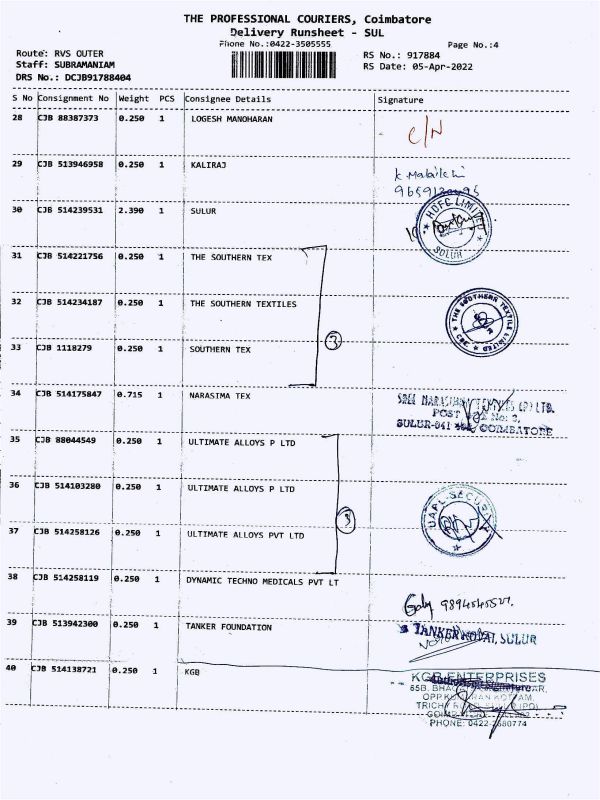 THE PROFESSIONAL COURIERS, Coimbatore
Delivery Runsheet - SUL
Phone No.:0422-3505555
Page No.:4
Route: RVS OUTER
RS No.: 917884
Staff: SUBRAMANIAM
RS Date: 05-Apr-2022
DRS No.: DCJB91788404
S No Consignment No Weight PCS Consignee Details Signature
28 CJB 88387373 0.250 1 LOGESH MANOHARAN
C/N
29 CJB 513946958 0.250 1 KALIRAJ
30 CJB 514239531 2.390 1 SULUR
HDFC LIMITED
SULUR
31 CJB 514221756 0.250 1 THE SOUTHERN TEX
32 CJB 514234187 0.250 1 THE SOUTHERN TEXTILES
THE SOUTHERN TEXTILE LIMITED
CBE
33 CJB 1118279 0.250 1 SOUTHERN TEX
3
34 CJB 514175847 0.715 1 NARASIMA TEX
(P) LTD.
POST No: 3,
SULUR-641 COIMBATORE
35 CJB 88044549 0.250 1 ULTIMATE ALLOYS P LTD
36 CJB 514103280 0.250 1 ULTIMATE ALLOYS P LTD
3
UAPL-SECURITY
37 CJB 514258126 0.250 1 ULTIMATE ALLOYS PVT LTD
38 CJB 514258119 0.250 1 DYNAMIC TECHNO MEDICALS PVT LT
39 CJB 513942300 0.250 1 TANKER FOUNDATION
TANKER SULUR
40 CJB 514138721 0.250 1 KGB
KGB ENTERPRISES
65B,
TRICHY ROAD, SULUR (PO)
PHONE: 0422-2680774